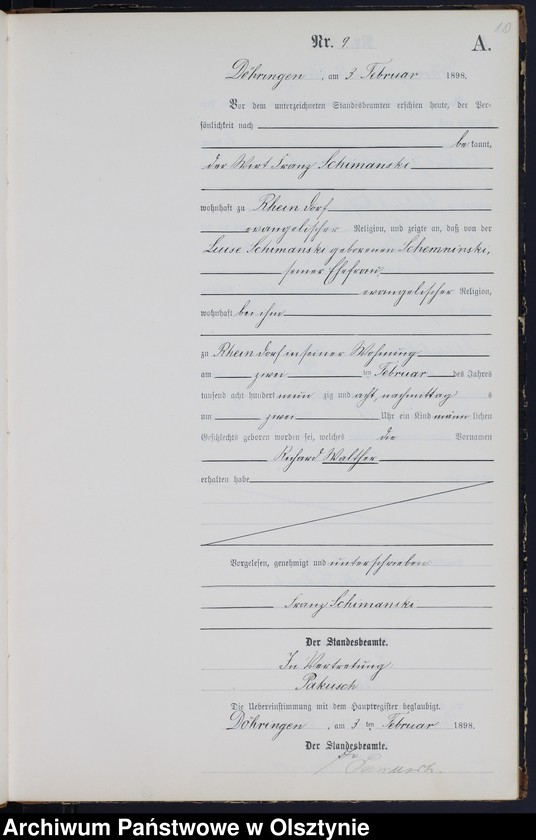 10
Nr. 9. A.
Döhringen, am 3 Februar 1898.
Vor dem unterzeichneten Standesbeamten erschien heute, der Per-
sönlichkeit nach
bekannt,
der Wirt Franz Schimanski
wohnhaft zu Rheindorf
evangelischer Religion, und zeigte an, daß von der
Luise Schimanski geborenen Schemninski,
seiner Ehefrau,
evangelischer Religion,
wohnhaft bei ihm
zu Rheindorf in seiner Wohnung
am zwei ten Februar des Jahres
tausend acht hundert neun zig und acht, nachmittag s
um zwei Uhr ein Kind männ lichen
Geschlechts geboren worden sei, welches die Vornamen
Richard Walther
erhalten habe
Vorgelesen, genehmigt und unterschrieben
Franz Schimanski
Der Standesbeamte.
In Vertretung
Pakusch
Die Uebereinstimmung mit dem Hauptregister beglaubigt.
Döhringen, am 3 ten Februar 1898.
Der Standesbeamte.
Archiwum Państwowe w Olsztynie